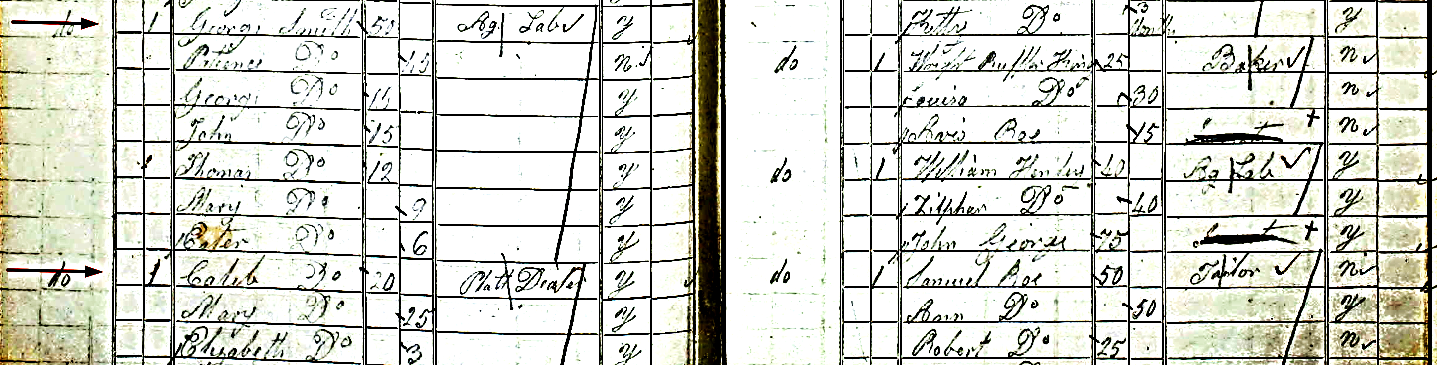 do 1 George Smith 50 Ag Lab Y
Patience Do 45 N
George Do 15 Y
John Do 15 Y
Thomas Do 12 Y
Mary Do 9 Y
Do 6 Y
do 1 Caleb Do 20 Dealer Y
Mary Do 25 Y
Elizabeth Do 3 Y
Do 3 Y
do 1 25 Baker N
Louisa Do 30 N
Roe 15 N
do 1 William 40 Ag Lab Y
Zilphar Do 40 Y
John George 75 Y
do 1 Samuel Roe 50 Tailor N
Ann Do 50 Y
Robert Do 25 N